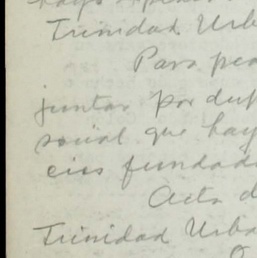 Trinidad Urb
Para pea
juntar por dup
social que hay
cios fundad
Acta d
Trinidad Urba